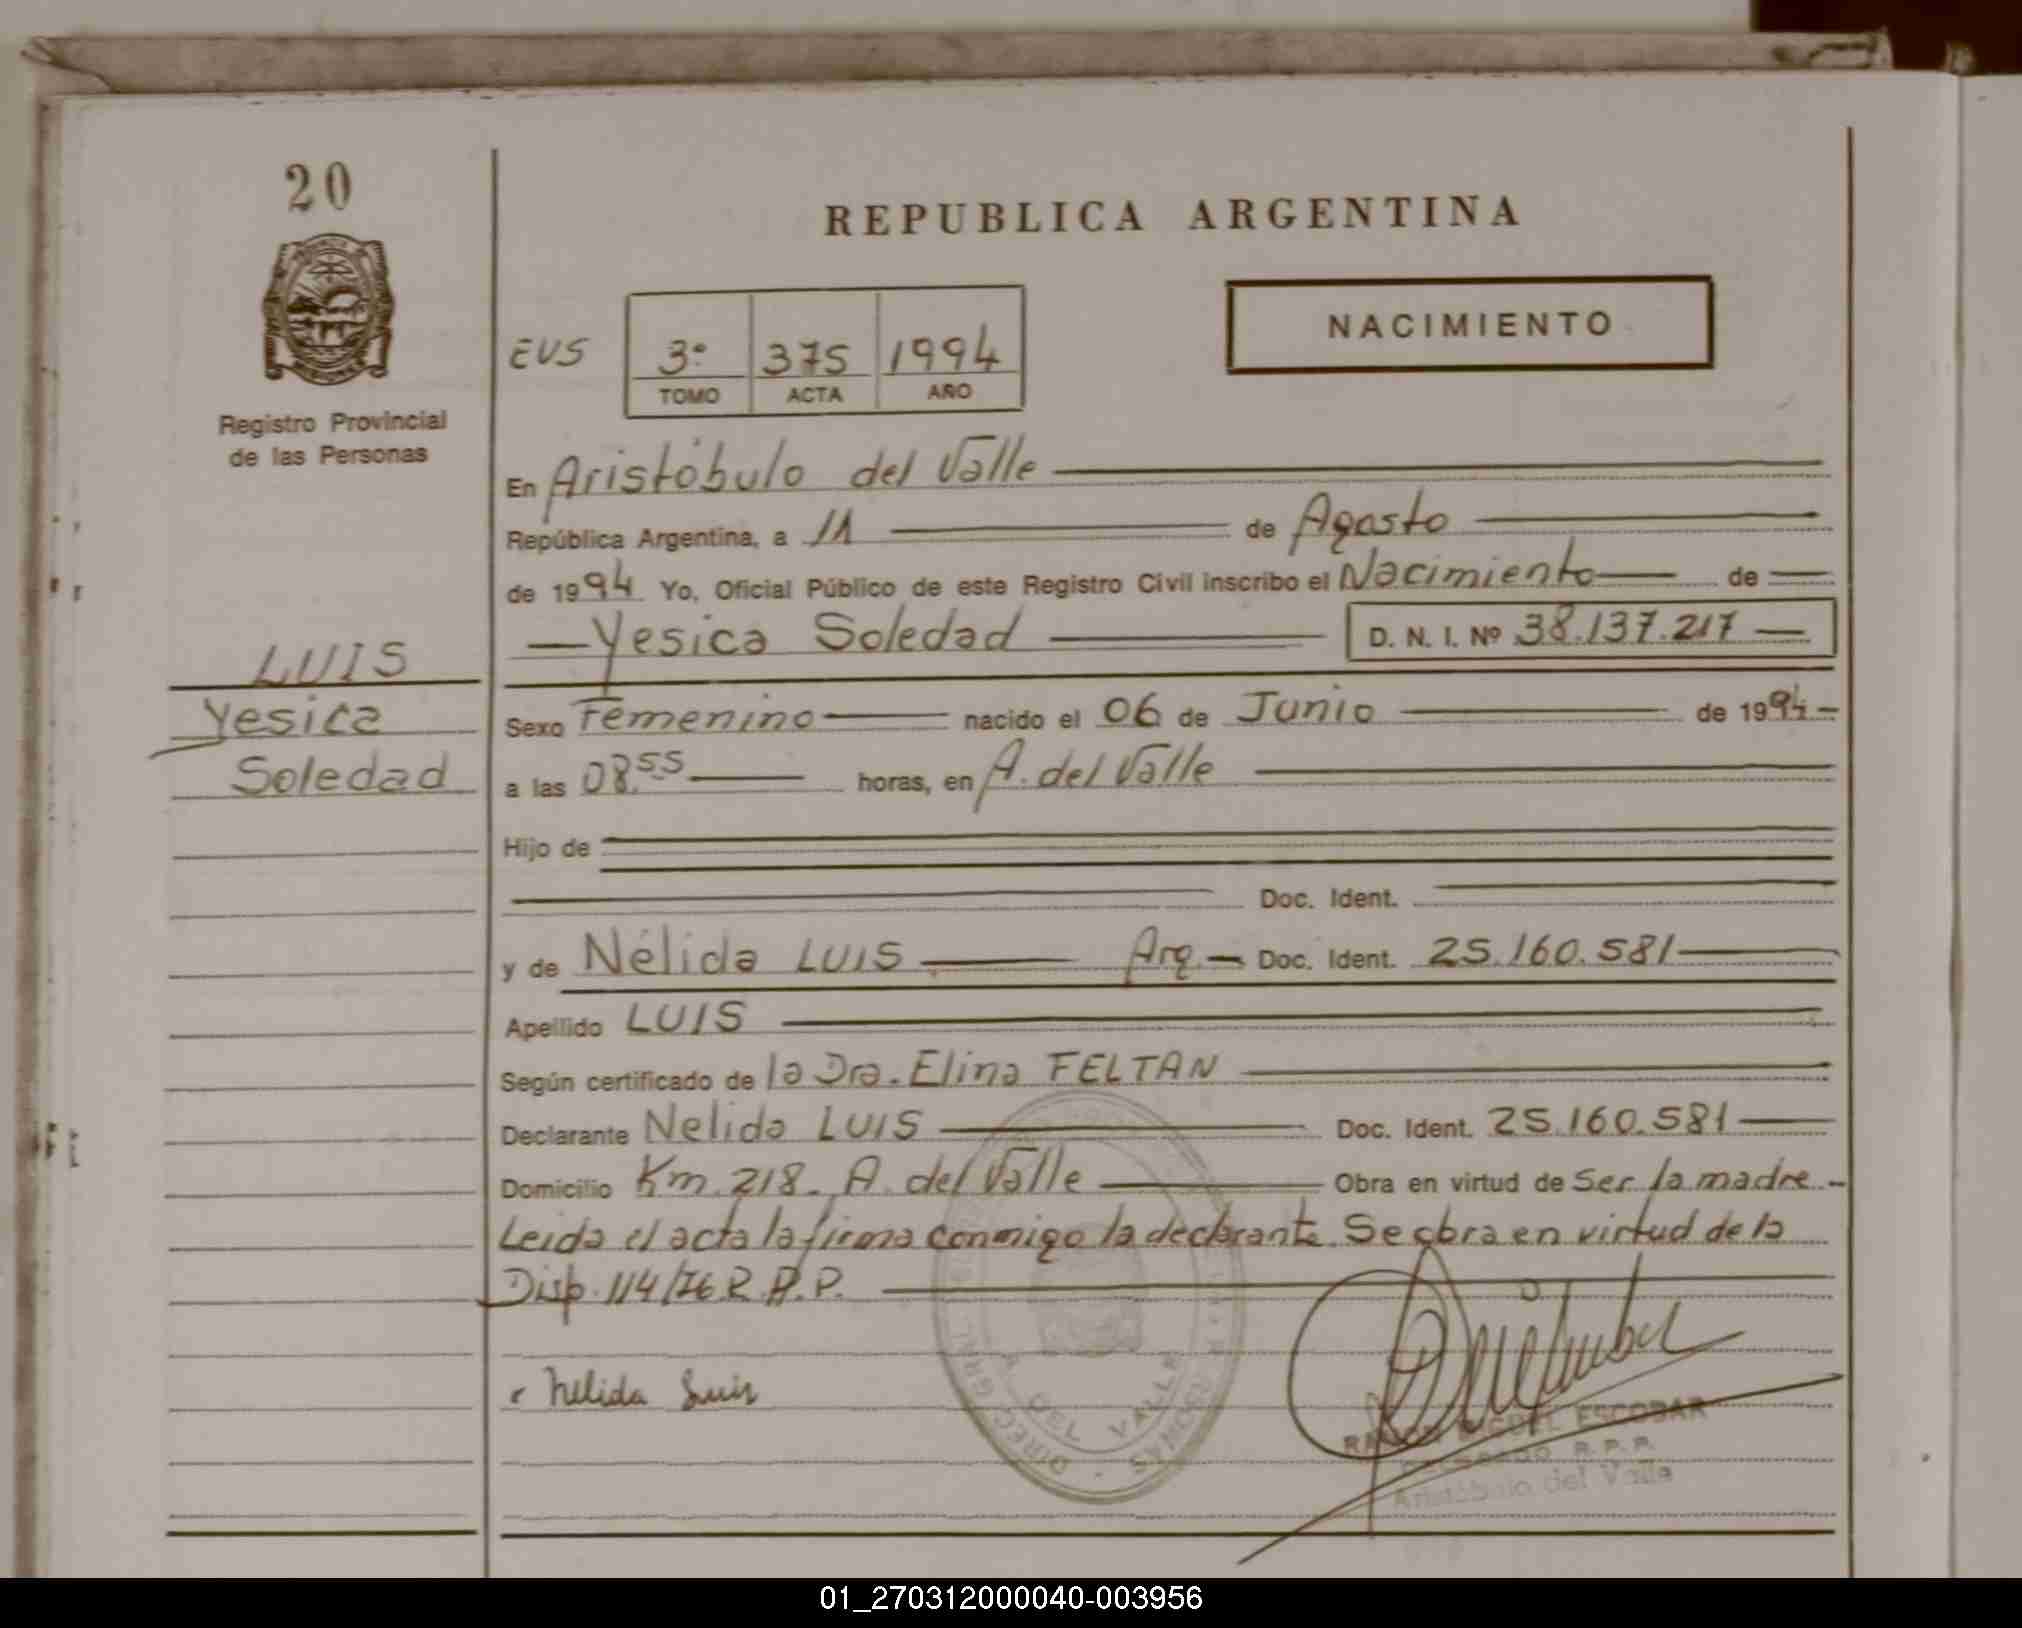 20
REPUBLICA ARGENTINA
NACIMIENTO
EVS 3º 375 1994
TOMO ACTA AÑO
Registro Provincial
de las Personas
En Aristóbulo del Valle
República Argentina, a 11 de Agosto
de 1994 Yo, Oficial Público de este Registro Civil inscribo el Nacimiento de
Yesica Soledad D. N. I. Nº 38.137.217
LUIS
Yesica
Soledad
Sexo Femenino nacido el 06 de Junio de 1994
a las 08.55 horas, en A. del Valle
Hijo de
Doc. Ident.
y de Nélida LUIS Arg. Doc. Ident. 25.160.581
Apellido LUIS
Según certificado de la Dra. Elina FELTAN
Declarante Nelida LUIS Doc. Ident. 25.160.581
Domicilio Km. 218. A. del Valle Obra en virtud de Ser la madre.
Leida el acta la firma conmigo la declarante. Se obra en virtud de la
Disp. 114/76 R.P.P.
Nelida Luis
DIREC. GRAL.
A. DEL VALLE
RAMON MIGUEL ESCOBAR
R. P. P.
Aristóbulo del Valle
01_270312000040-003956